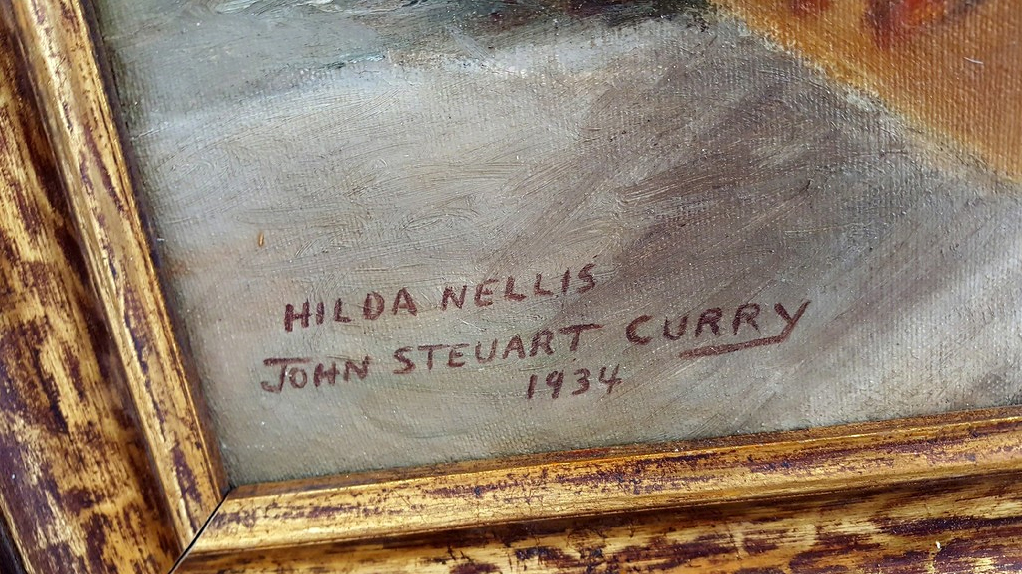 HILDA NELLIS
JOHN STEUART CURRY
1934